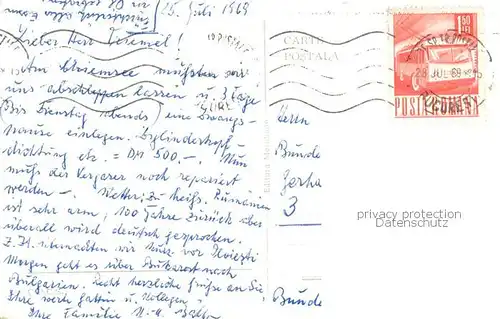 26. Juli 1969
Lieber Herr
Am Chiemsee mußten wir
uns abschleppen lassen u. 3 Tage
(Bis Dienstag abends) eine Zwangs-
pause einlegen. Zylinderkopf-
dichtung etc. = DM 500.-. Nun
muß der Vergaser noch repariert
werden -. Wetter: Zu heiß. Rumänien
ist sehr arm, 100 Jahre zurück aber
überall wird deutsch gesprochen.
Z. Zt. übernachten wir kurz vor Ploiesti
Morgen geht es über Bukarest nach
Bulgarien. Recht herzliche Grüße an Sie,
Ihre werte Gattin u. Kollegen.
Ihre Familie
CARTE
POSTALA
1,50 LEI
28 JUL 69
POSTA ROMANA
Herrn
Bunde
Gerha
3
Bunde
privacy protection
Datenschutz